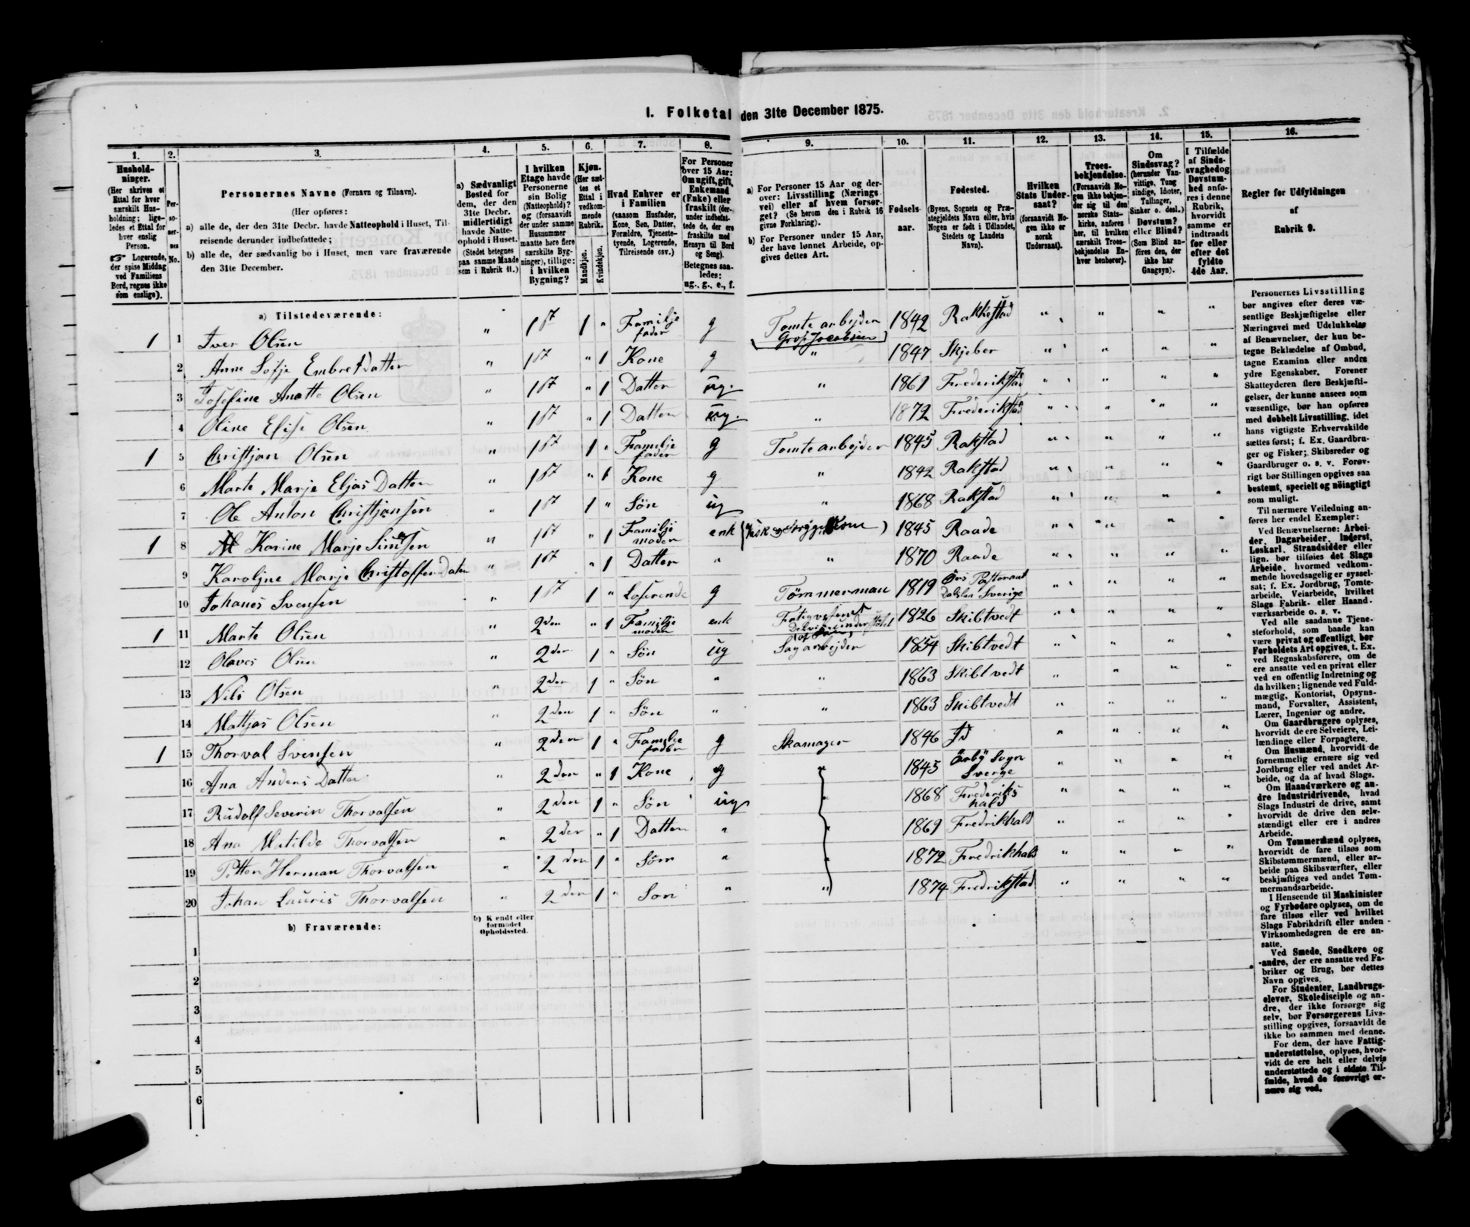 1. Folketal den 31te December 1875.
1. 2. 3. 4. 5. 6. 7. 8. 9. 10. 11. 12. 13. 14. 15. 16.
Hushold-
ninger.
(Her skrives et
Ettal for hver
særskilt Hus-
holdning; lige-
ledes et Ettal for
hver enslig
Person.
Logerende,
der spise Middag
ved Familiens
Bord, regnes ikke
som enslige).
Per-
so-
ner-
nes
No.
Personernes Navne (Fornavn og Tilnavn).
(Her opføres:
a) alle de, der den 31te Decbr. havde Natteophold i Huset, Til-
reisende derunder indbefattede;
b) alle de, der sædvanlig bo i Huset, men vare fraværende
den 31te December.
a) Sædvanligt
Bosted for
dem, der den
31te Decbr.
midlertidigt
havde Natte-
ophold i Huset.
(Stedet betegnes
paa samme Maade
som i Rubrik 11.)
I hvilken
Etage havde
Personerne
sin Bolig
(Natteophold)?
og (forsaavidt
der under samme
Husnummer
maatte høre flere
særskilte Byg-
ninger), tillige:
i hvilken
Bygning?
Kjøn.
(Her sæt-
tes et
Ettal i
vedkom-
mende
Rubrik.)
Mandkjøn.
Kvindekjøn.
Hvad Enhver er
i Familien
(saasom Husfader,
Kone, Søn, Datter,
Forældre, Tjeneste-
tyende, Logerende,
Tilreisende osv.)
For Personer
over 15 Aar:
Om ugift, gift,
Enkemand
(Enke) eller
fraskilt (der-
under indbefat-
tede de, der ere
fraskilte med
Hensyn til Bord
og Seng).
Betegnes saa-
ledes:
ug., g., e., f.
a) For Personer 15 Aar og der-
over: Livsstilling (Nærings-
vei) eller af hvem forsør-
get? (Se herom den i Rubrik 16
givne Forklaring).
b) For Personer under 15 Aar,
der have lønnet Arbeide, op-
gives dettes Art.
Fødsels-
aar.
Fødested.
(Byens, Sognets og Præ-
stegjeldets Navn eller, hvis
Nogen er født i Udlandet,
Stedets og Landets
Navn).
Hvilken
Stats Under-
saat?
(forsaavidt No-
gen ikke er
norsk
Undersaat).
Troes-
bekjendelse.
(Forsaavidt No-
gen ikke bekjen-
der sig til den
norske Stats-
kirke, anføres
her, til hvilken
særskilt Troes-
bekjendelse En-
hver henhører).
Om
Sindssvag?
(herunder Van-
vittige, Tung
sindige, Idioter,
Tullinger,
Sinker o. desl.)
Døvstum?
eller Blind?
(Som Blind an-
føres den, der
ikke har
Gangsyn).
I Tilfælde
af Sinds-
svaghed og
Døvstum-
hed anfø-
res i denne
Rubrik,
hvorvidt
samme er
indtraadt
før eller
efter det
fyldte
4de Aar.
Regler for Udfyldningen
af
Rubrik 9.
a) Tilstedeværende:
1 1 Iver Olsen " 1 St 1 " Familje fader g Tomte arbejder 1842 Rakkestad
2 Anne Sofje Embretdatter " 1 St " 1 Kone g " 1847 Skjeber
3 Josefine Anette Olsen " 1 St " 1 Datter ug. " 1861 Frederikstad
4 Oline Elise Olsen " 1 St " 1 Datter ug. " 1872 Frederikstad
1 5 Cristjan Olsen " 1 St 1 " Familje fader g Tomte arbejder 1845 Rakstad
6 Marte Marje Eljas Datter " 1 St " 1 Kone g " 1842 Rakstad
7 Ole Anton Christjansen " 1 St 1 " Søn ug " 1868 Rakstad
1 8 Karine Marje Simsen " 1 St " 1 Familje moder enk 1845 Raade
9 Karoljne Marje Christoffer Dater " 1 St " 1 Datter " " 1870 Raade
10 Johanes Svensen " 1 St 1 " Loserende g Tømmerman 1819 Pastorant Dalslan Sverige
1 11 Marte Olsen " 2den " 1 Familje moder enk 1826 Skibtvedt
12 Olaves Olsen " 2den 1 " Søn ug Sagarbejder 1854 Skibtvedt
13 Nils Olsen " 2den 1 " Søn " " 1863 Skibtvedt
14 Mattjas Olsen " 2den 1 " Søn " " 1863 Skibtvedt
1 15 Thorval Svensen " 2den 1 " Familje fader g Skomager 1846 Id
16 Ana Anders Datter " 2den " 1 Kone g " 1845 Sogn Sverge
17 Rudolf Severin Thorvalsen " 2den 1 " Søn ug " 1868 Frederiks hald
18 Ana Matilde Thorvalsen " 2den " 1 Datter " " 1869 Fredrikhald
19 Petter Herman Thorvalsen " 2den 1 " Søn " " 1872 Fredrikhald
20 Johan Lauris Thorvalsen " 2den 1 " Søn " " 1874 Fredrikstad
b) Fraværende:
b) Kjendt eller
formodet
Opholdssted.
1
2
3
4
5
6
Personernes Livsstilling
bør angives efter deres væ-
sentlige Beskjæftigelse eller
Næringsvei med Udelukkelse
af Benævnelser, der kun be-
tegne Beklædelse af Ombud,
tagne Examina eller andre
ydre Egenskaber. Forener
Skatteyderen flere Beskjæfti-
gelser, der kunne ansees som
væsentlige, bør han opføres
med dobbelt Livsstilling, idet
hans vigtigste Erhvervskilde
sættes først; f. Ex. Gaardbru-
ger og Fisker; Skibsreder og
Gaardbruger o. s. v. Forøv-
rigt bør Stillingen opgives saa
bestemt, specielt og nøiagtigt
som muligt.
Til nærmere Veiledning an-
føres her endel Exempler:
Ved Benævnelserne: Arbei-
der, Dagarbeider, Inderst,
Løskarl, Strandsidder eller
lign. bør tilføies det Slags
Arbeide, hvormed vedkom-
mende hovedsagelig er syssel-
sat; f. Ex. Jordbrug, Tomte-
arbeide, Veiarbeide, hvilket
Slags Fabrik- eller Haand-
værksarbeide o. s. v.
Ved alle saadanne Tjene-
steforhold, som baade kan
være privat og offentligt, bør
Forholdets Art opgives, t. Ex.
ved Regnskabsførere, om de
ere ansatte ved en privat eller
ved en offentlig Indretning og
da hvilken; lignende ved Fuld-
mægtig, Kontorist, Opsyns-
mand, Forvalter, Assistent,
Lærer, Ingeniør og andre.
Om Gaardbrugere oplyses,
hvorvidt de ere Selveiere, Lei-
lændinge eller Forpagtere.
Om Husmænd, hvorvidt de
fornemmelig ernære sig ved
Jordbrug eller ved andet Ar-
beide, og da af hvad Slags.
Om Haandværkere og an-
dre Industridrivende, hvad
Slags Industri de drive, samt
hvorvidt de drive den selv-
stændigt eller ere i andres
Arbeide.
Om Tømmermænd oplyses,
hvorvidt de fare tilsøs som
Skibstømmermænd, eller ar-
beide paa Skibsværfter, eller
beskjæftiges ved andet Tøm-
mermandsarbeide.
I Henseende til Maskinister
og Fyrbødere oplyses, om de
fare tilsøs eller ved hvilket
Slags Fabrikdrift eller anden
Virksomhedsgren de ere an-
satte.
Ved Smede, Snedkere og
andre, der ere ansatte ved Fa-
briker og Brug, bør dettes
Navn opgives.
For Studenter, Landbrugs-
elever, Skoledisciple og an-
dre, der ikke forsørge sig
selv, bør Forsørgerens Livs-
stilling opgives, forsaavidt de
ikke bo sammen med denne.
For dem, der have Fattig-
understøttelse, oplyses, hvor-
vidt de ere helt eller delvis
understøttede og i sidste Til-
fælde, hvad de forøvrigt er-
nære sig ved.